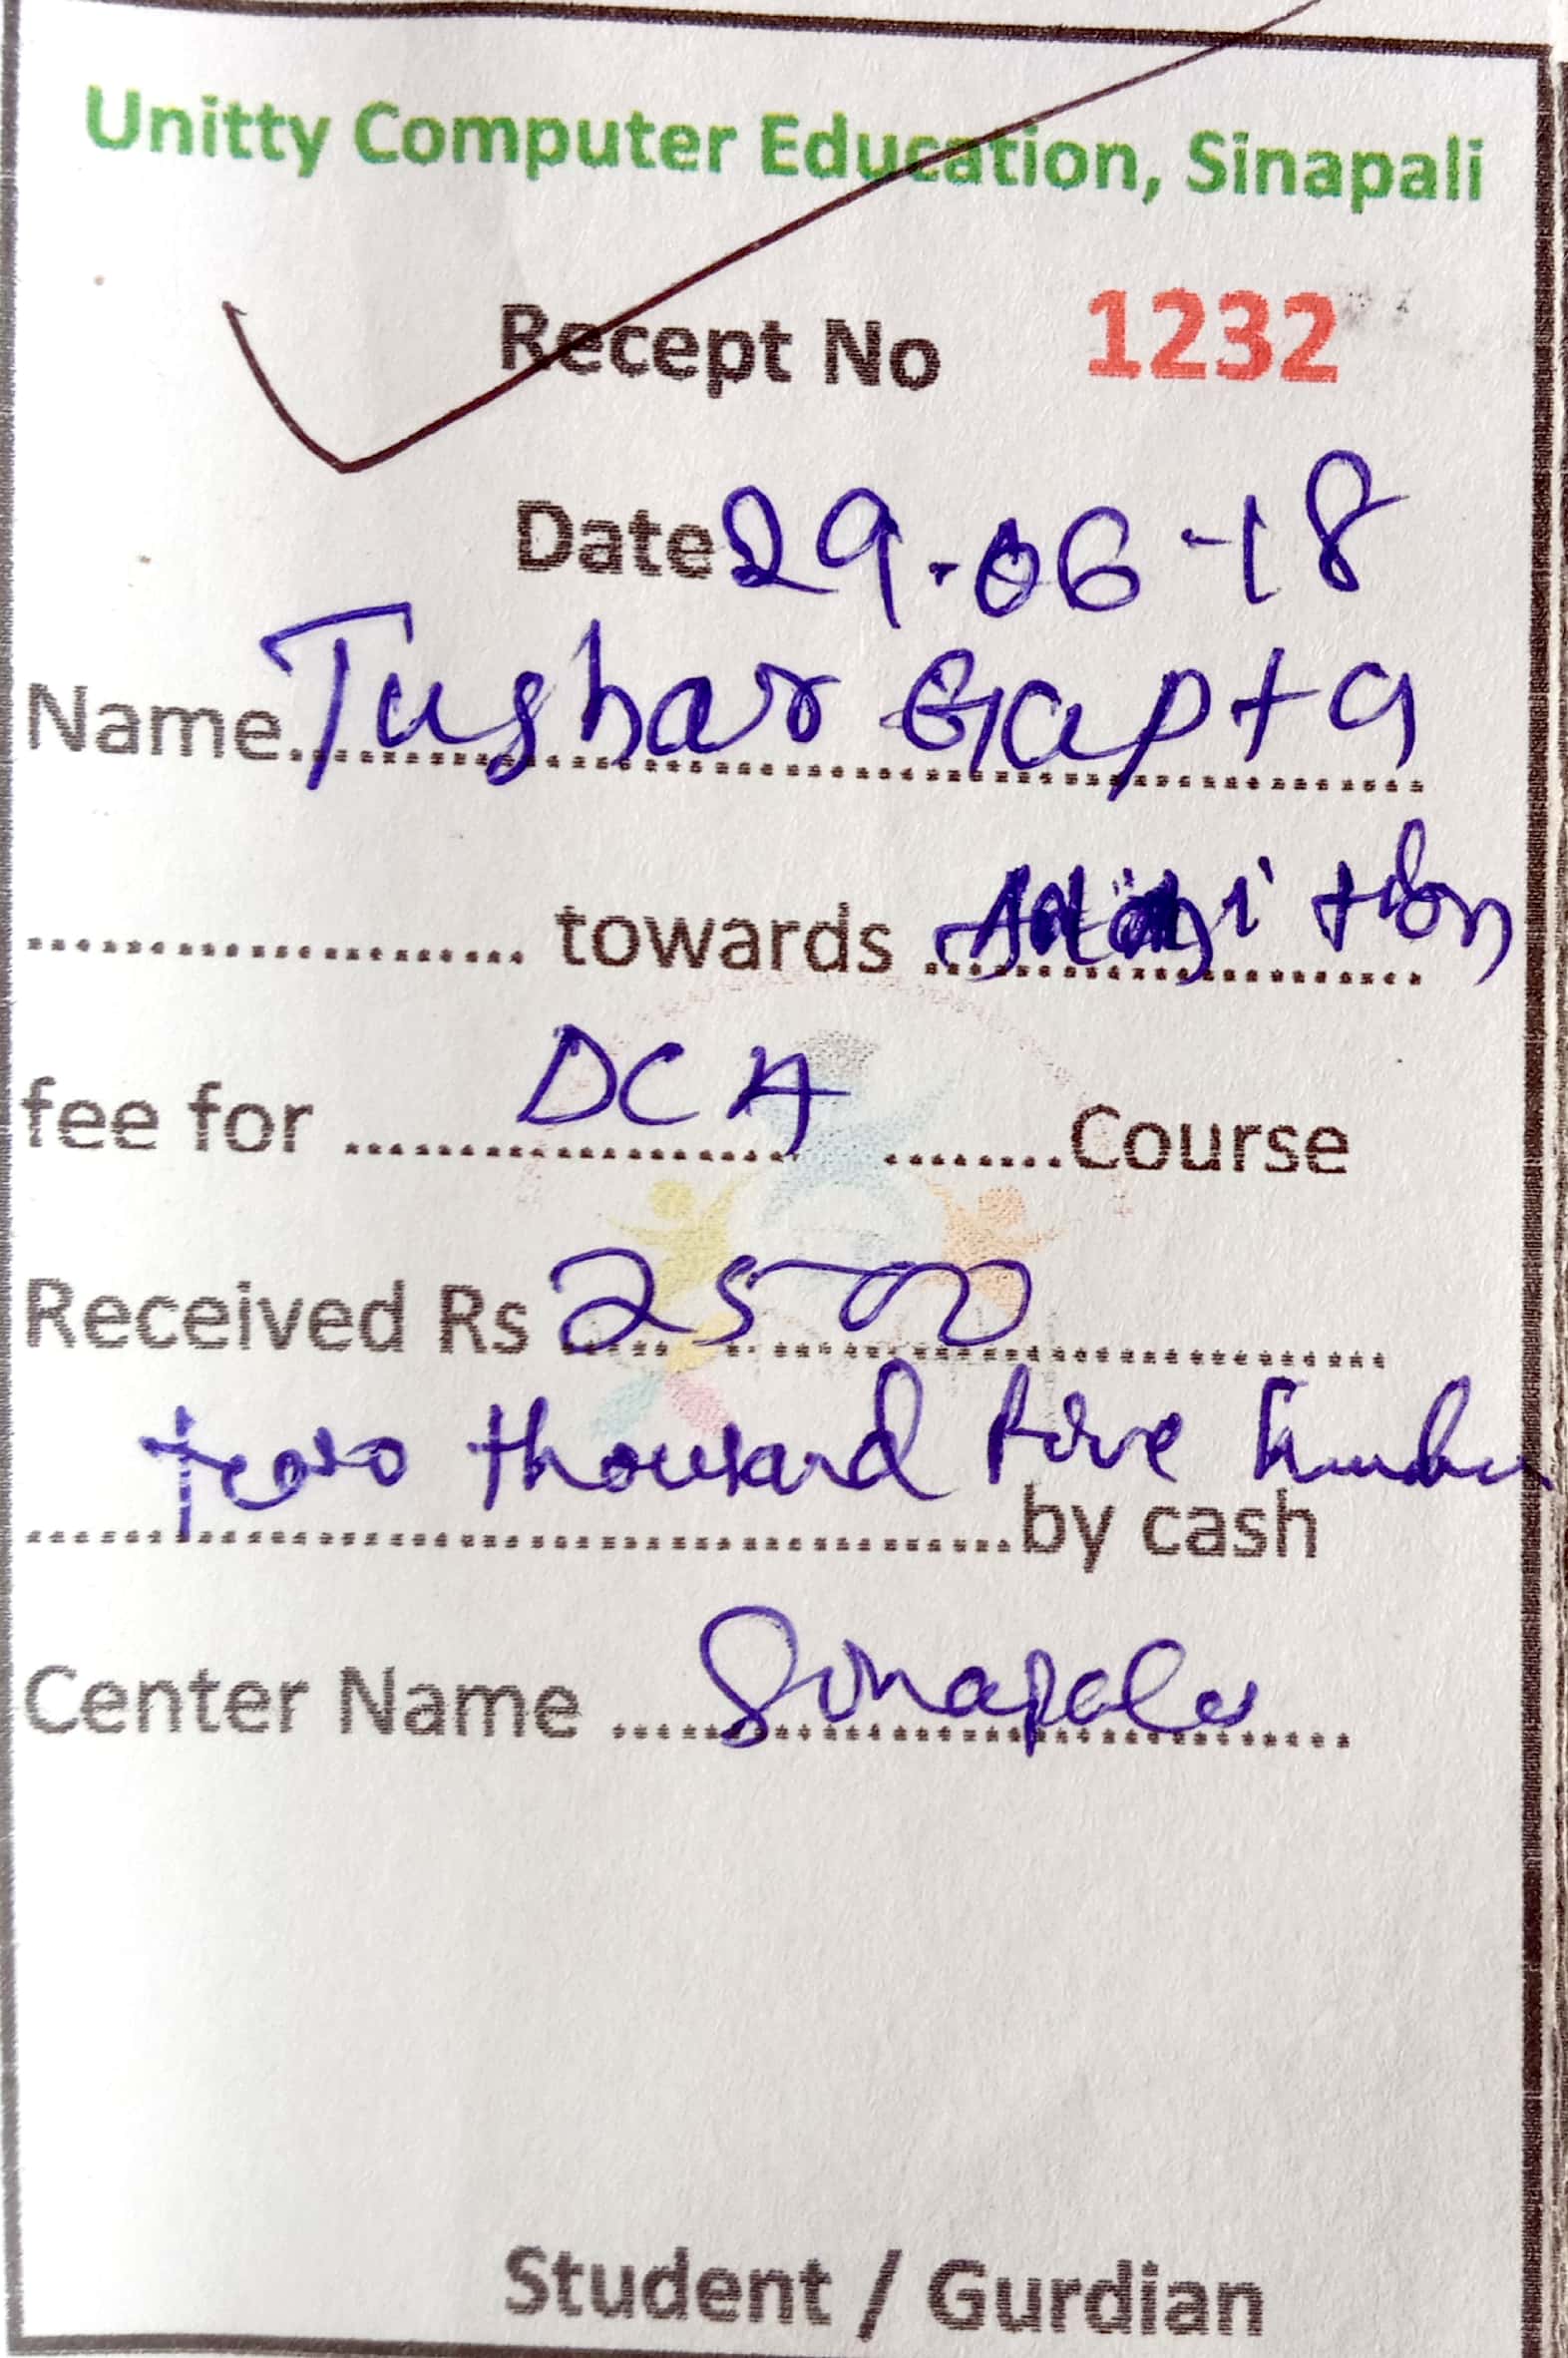 Unitty Computer Education, Sinapali
Recept No 1232
Date 29.06-18
Name. Tushar Gupta
towards
fee for DCA Course
Received Rs 2500
two thousand five hundred
by cash
Center Name Sinapali
Student / Gurdian